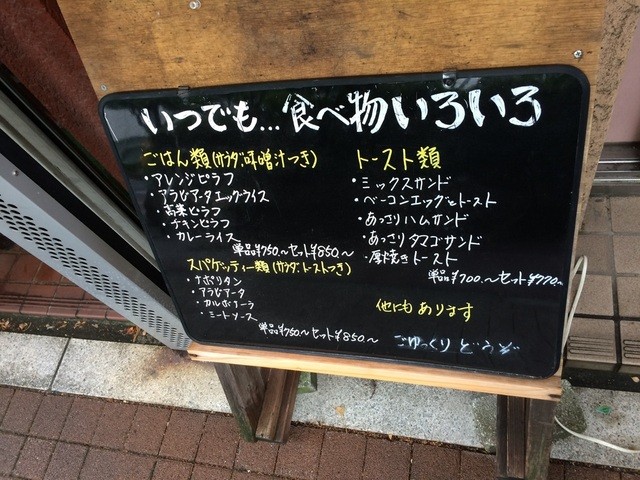 いつでも…食べ物いろいろ
ごはん類(サラダ、味噌汁つき)
・アレンジピラフ
・アラビアータエッグライス
・高菜ピラフ
・チキンピラフ
・カレーライス
単品¥750.〜セット¥850.〜
スパゲッティー類(サラダ、トーストつき)
・ナポリタン
・アラビアータ
・カルボナーラ
・ミートソース
単品¥750.〜セット¥850.〜
トースト類
・ミックスサンド
・ベーコンエッグとトースト
・あっさりハムサンド
・あっさりタマゴサンド
・厚焼きトースト
単品¥700.〜セット¥770.〜
他にもあります
ごゆっくりどうぞ